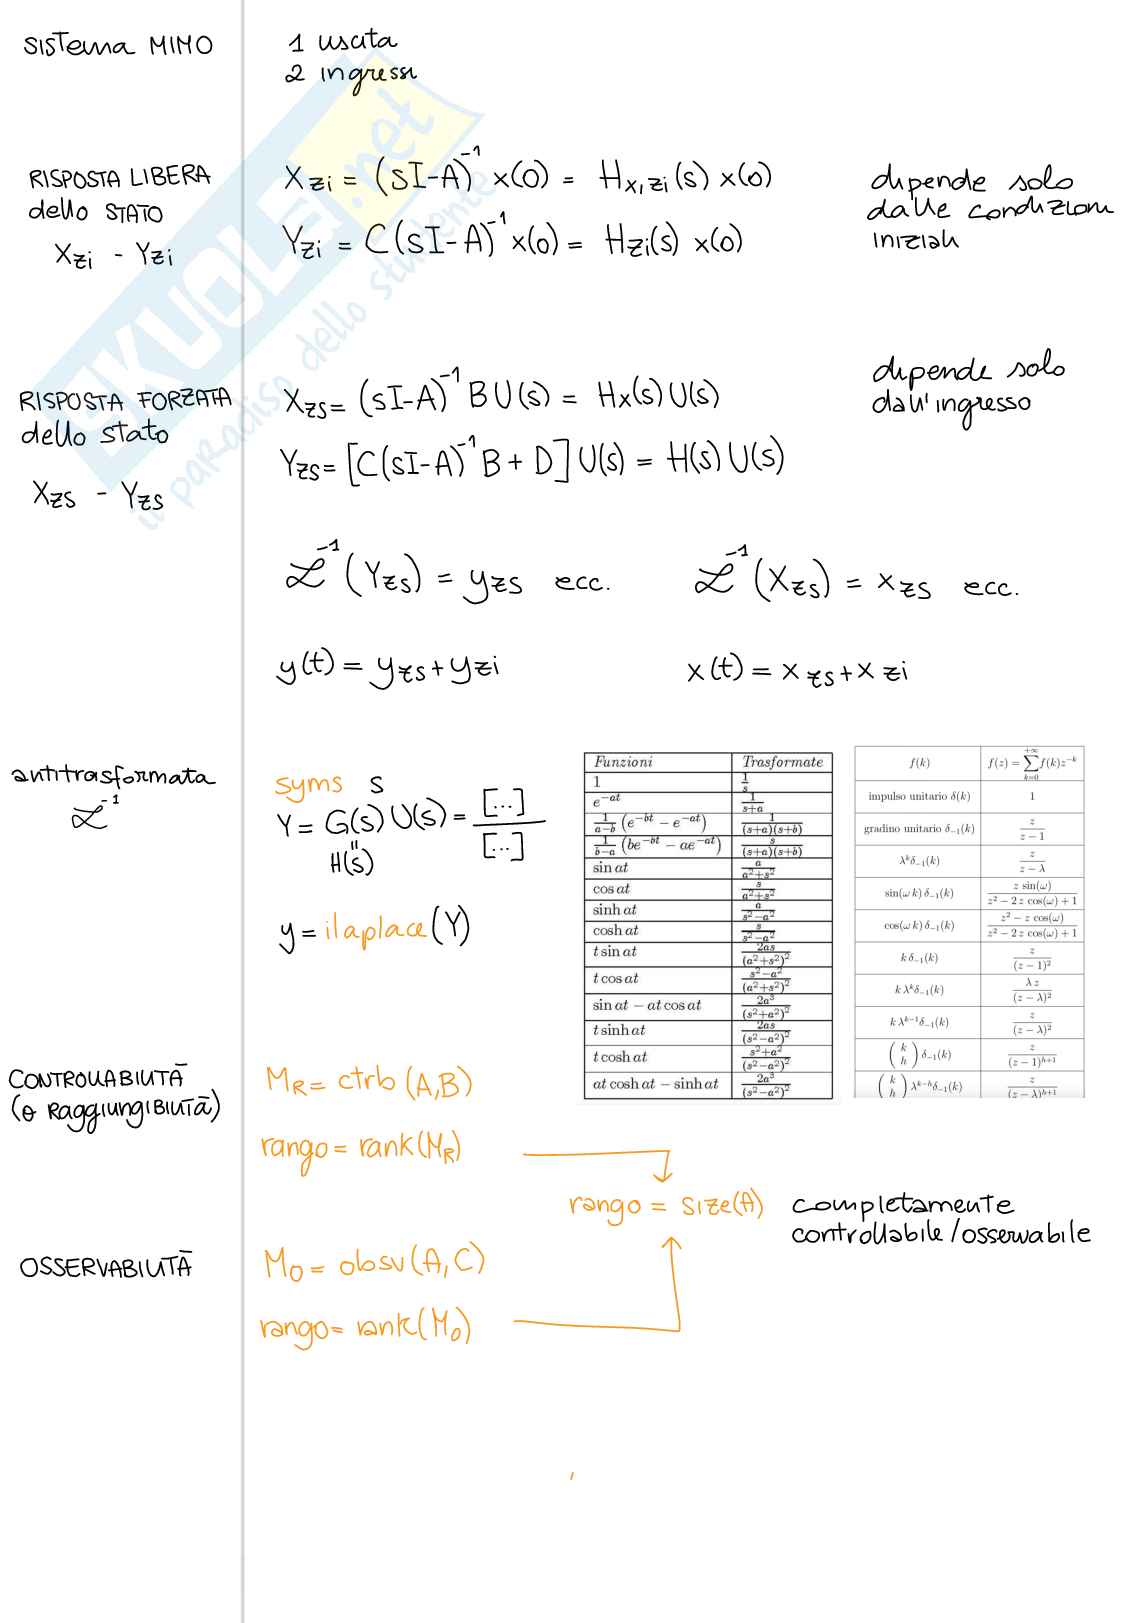 SISTema MIMO
1 uscita
2 ingressi
RISPOSTA LIBERA
dello STATO
Xzi - Yzi
Xzi = (sI-A)⁻¹ x(0) = Hx,zi(s) x(0)
Yzi = C(sI-A)⁻¹ x(0) = Hzi(s) x(0)
dipende solo
dalle condizioni
iniziali
RISPOSTA FORZATA
dello stato
Xzs - Yzs
Xzs = (sI-A)⁻¹ B U(s) = Hx(s) U(s)
Yzs = [C(sI-A)⁻¹ B + D] U(s) = H(s) U(s)
dipende solo
dall'ingresso
ℒ⁻¹(Yzs) = yzs ecc.
ℒ⁻¹(Xzs) = xzs ecc.
y(t) = yzs + yzi
x(t) = xzs + xzi
antitrasformata
ℒ⁻¹
syms s
Y = G(s) U(s) = [...] / [...]
"
H(s)
y = ilaplace(Y)
Funzioni Trasformate
1 1/s
e^{-at} 1/(s+a)
1/(a-b) (e^{-bt} - e^{-at}) 1/((s+a)(s+b))
1/(b-a) (be^{-bt} - ae^{-at}) s/((s+a)(s+b))
sin at a/(a²+s²)
cos at s/(a²+s²)
sinh at a/(s²-a²)
cosh at s/(s²-a²)
t sin at 2as/(a²+s²)²
t cos at (s²-a²)/(a²+s²)²
sin at - at cos at 2a³/(s²+a²)²
t sinh at 2as/(s²-a²)²
t cosh at (s²+a²)/(s²-a²)²
at cosh at - sinh at 2a³/(s²-a²)²
f(k) f(z) = Σ_{k=0}^{+∞} f(k)z^{-k}
impulso unitario δ(k) 1
gradino unitario δ₋₁(k) z/(z-1)
λ^k δ₋₁(k) z/(z-λ)
sin(ω k) δ₋₁(k) z sin(ω)/(z² - 2 z cos(ω) + 1)
cos(ω k) δ₋₁(k) (z² - z cos(ω))/(z² - 2 z cos(ω) + 1)
k δ₋₁(k) z/(z-1)²
k λ^k δ₋₁(k) λ z/(z-λ)²
k λ^{k-1} δ₋₁(k) z/(z-λ)²
(k h) δ₋₁(k) z/(z-1)^{h+1}
(k h) λ^{k-h} δ₋₁(k) z/(z-λ)^{h+1}
CONTROLLABILITÀ
(o RaggiungiBILITà)
MR = ctrb (A,B)
rango = rank(MR)
rango = size(A)
completamente
controllabile/osservabile
OSSERVABILITÀ
Mo = obsv(A,C)
rango = rank(Mo)
SKUOLA.net
il paradiso dello studente